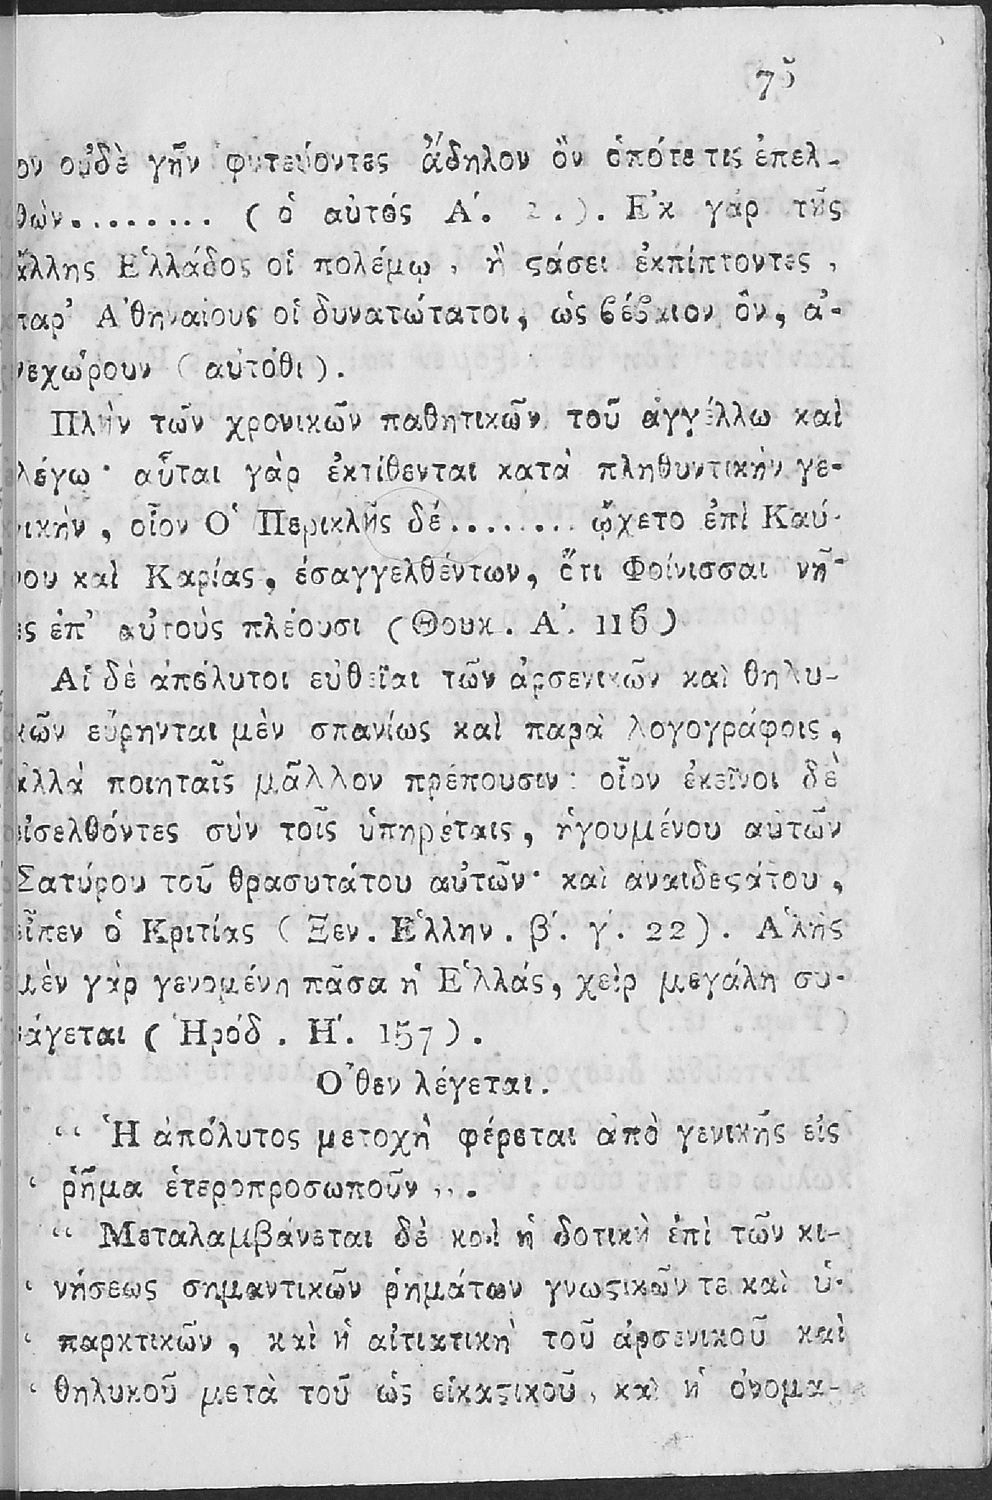 75
ον οὐδὲ γῆν φυτεύοντες ἄδηλον ὂν ὁπότε τις ἐπελ-
θὼν........ (ὁ αὐτός Α΄. 2.). Ἐκ γάρ τῆς
ἄλλης Ἑλλάδος οἱ πολέμῳ, ἢ ϛάσει ἐκπίπτοντες,
παρ' Ἀθηναίους οἱ δυνατώτατοι, ὡς βέβαιον ὂν, ἀ-
νεχώρουν (αὐτόθι).
Πλὴν τῶν χρονικῶν παθητικῶν τοῦ ἀγγέλλω καὶ
λέγω· αὗται γὰρ ἐκτίθενται κατὰ πληθυντικὴν γε-
νικὴν, οἷον Ὁ Περικλῆς δέ........ ᾤχετο ἐπὶ Καύ-
νου καὶ Καρίας, ἐσαγγελθέντων, ὅτι Φοίνισσαι νῆ-
ες ἐπ' αὐτοὺς πλέουσι (Θουκ. Α΄. 116)
Αἱ δὲ ἀπόλυτοι εὐθεῖαι τῶν ἀρσενικῶν καὶ θηλυ-
κῶν εὕρηνται μὲν σπανίως καὶ παρὰ λογογράφοις,
ἀλλὰ ποιηταῖς μᾶλλον πρέπουσιν: οἷον ἐκεῖνοι δὲ
εἰσελθόντες σὺν τοῖς ὑπηρέταις, ἡγουμένου αὐτῶν
Σατύρου τοῦ θρασυτάτου αὐτῶν· καὶ ἀναιδεϛάτου,
εἶπεν ὁ Κριτίας (Ξεν. Ἑλλην. β΄. γ΄. 22). Ἁλὴς
μὲν γὰρ γενομένη πᾶσα ἡ Ἑλλάς, χεὶρ μεγάλη συ-
νάγεται (Ἡρόδ. Η΄. 157).
Ὅθεν λέγεται.
“ Ἡ ἀπόλυτος μετοχὴ φέρεται ἀπὸ γενικῆς εἰς
‘ ῥῆμα ἑτεροπροσωποῦν ,,.
“ Μεταλαμβάνεται δὲ καὶ ἡ δοτικὴ ἐπὶ τῶν κι-
‘ νήσεως σημαντικῶν ῥημάτων γνωϛικῶν τε καὶ ὑ-
‘ παρκτικῶν, καὶ ἡ αἰτιατικὴ τοῦ ἀρσενικοῦ καὶ
‘ θηλυκοῦ μετὰ τοῦ ὡς εἰκαϛικοῦ, καὶ ἡ ὀνομα-